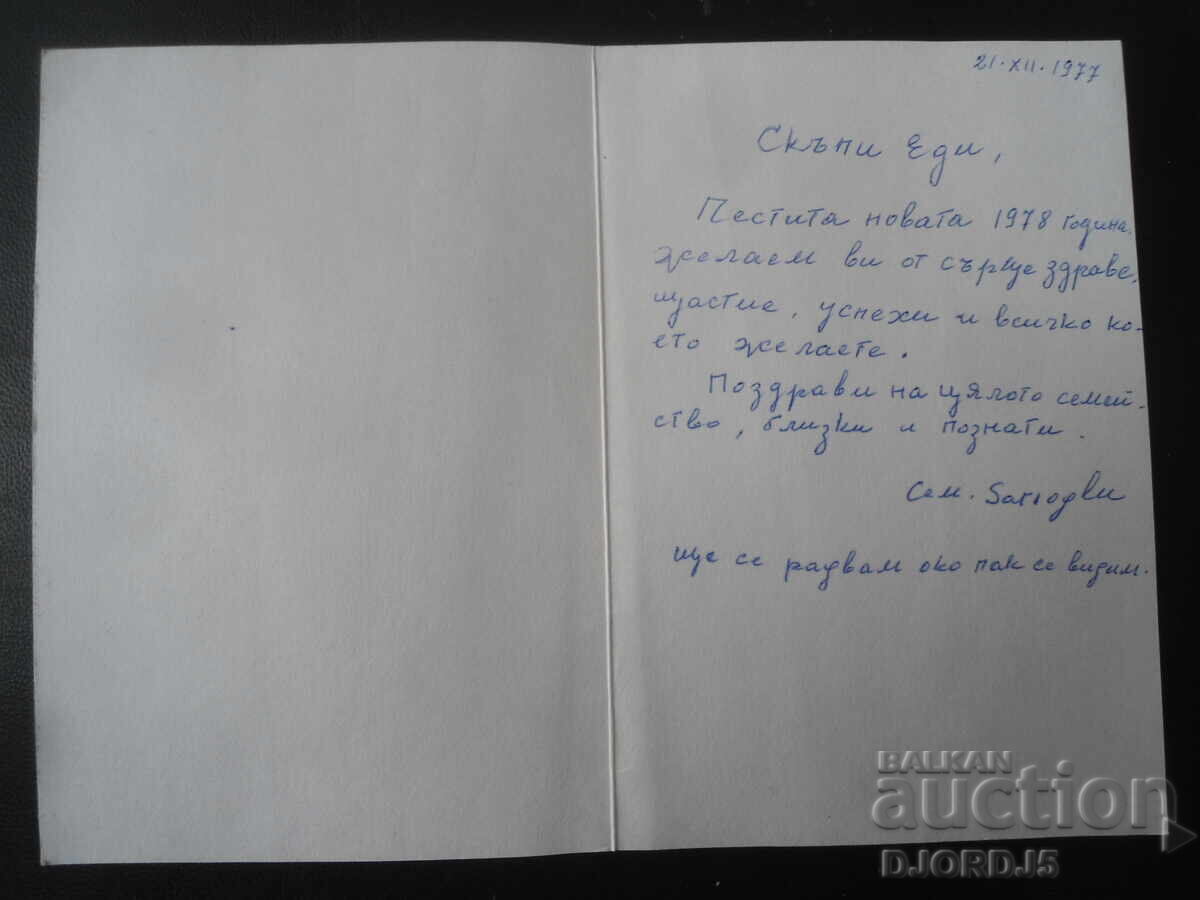 21.XII.1977
Скъпи Еди,
Честита новата 1978 година.
желаем ви от сърце здраве,
щастие, успехи и всичко ко-
ето желаете.
Поздрави на цялото семей-
ство, близки и познати.
Сем.
ще се радвам ако пак се видим.
BALKAN
auction
DJORDJ5